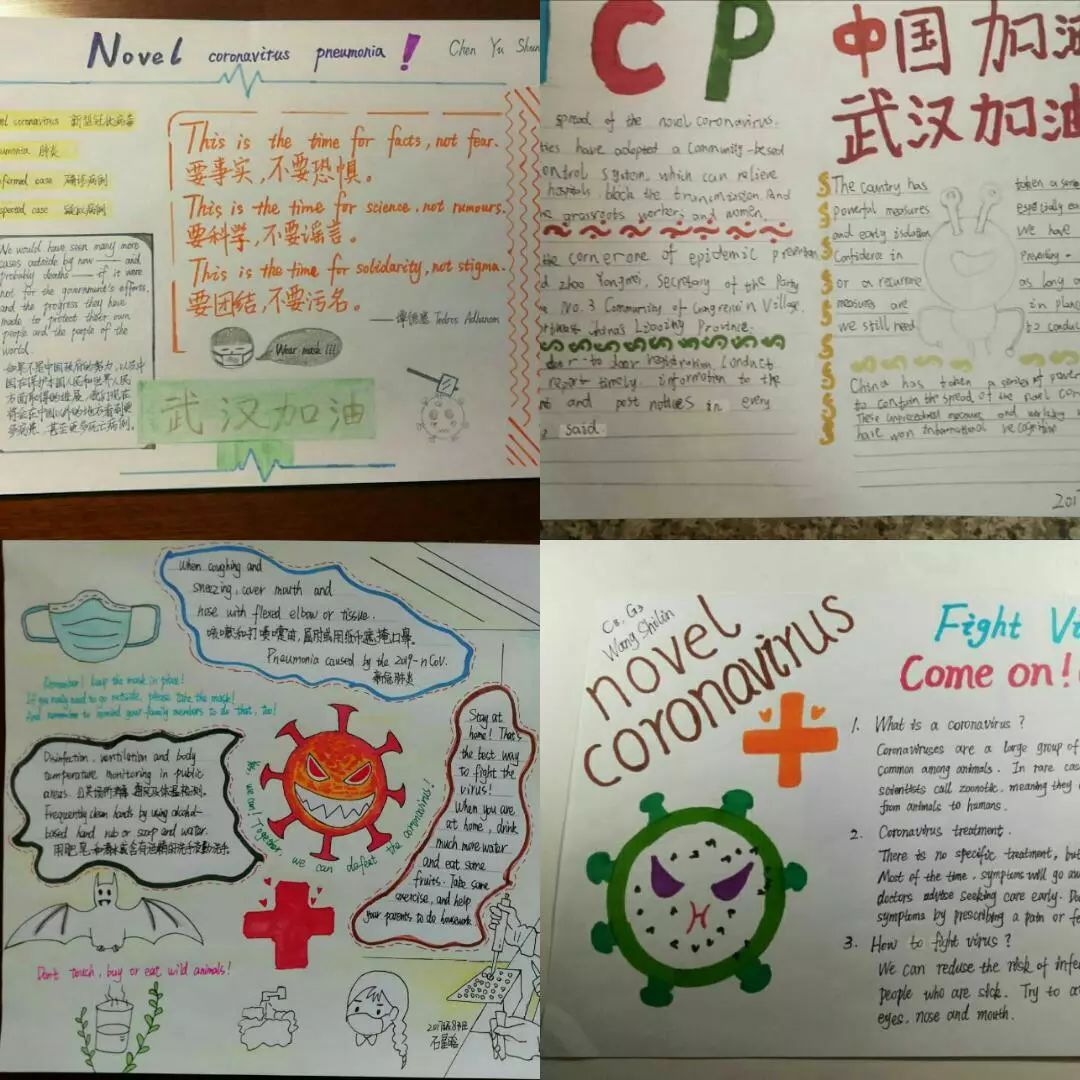 Novel coronavirus pneumonia !
Chen Yu Shun
coronavirus 新型冠状病毒
肺炎
case 确诊病例
case 疑似病例
This is the time for facts, not fear.
要事实,不要恐惧。
This is the time for science, not rumours.
要科学,不要谣言。
This is the time for solidarity, not stigma.
要团结,不要污名。
—— 谭德塞 Tedros Adhanom
We would have seen many more
cases outside by now —— and
probably deaths —— if it were
not for the government's efforts,
and the progress they have
made to protect their own
people and the people of the
world.
如果不是中国政府的努力,以及中
国在保护本国人民和世界人民
方面取得的进展,我们现在
将会在中国以外的地方看到更
多病患,甚至更多死亡病例。
Wear mask !!!
武汉加油
CP
中国加油
武汉加油
spread of the novel coronavirus.
have adopted a community-based
control system, which can relieve
hospitals block the transmission. And
grassroots workers and women
the cornerone of epidemic prevention
Zhao Yongmei, Secretary of the Party
No. 3 Community of Village,
Province.
door-to door registration, conduct
report timely information to the
and post notices in every
said.
The country has
powerful measures
and early isolation
Confidence in
or a recurrence
measures are
we still need
token a
especially
we have
Preventing
as long a
in place
to conduct
China has token a series of
to contain the spread of the novel
These unprecedented measures and
have won International recognition
201
When coughing and
sneezing, cover mouth and
nose with flexed elbow or tissue.
咳嗽和打喷嚏时,屈肘或用纸巾遮掩口鼻。
Pneumonia caused by the 2019-nCoV.
新冠肺炎
Remember! keep the mask in place!
If you really need to go outside, please take the mask!
And remember to remind your family members to do that, too!
Disinfection, ventilation and body
temperature monitoring in public
areas. 公共场所消毒 通风及体温检测.
Frequently clean hands by using alcohol-
based hand rub or soap and water.
Yes, we can! Together we can defeat the coronavirus!
Stay at
home! That's
the best way
to fight the
virus!
When you are
at home, drink
much more water
and eat some
fruits. Take some
exercise, and help
your parents to do housework.
Don't touch, buy or eat wild animals!
novel
coronavirus
Wang Shilin
Fight Vi
Come on!
1. What is a coronavirus?
Coronaviruses are a large group of
common among animals. In rare cas
scientists call zoonotic, meaning they
from animals to humans.
2. Coronavirus treatment.
There is no specific treatment, but
Most of the time, symptoms will go aw
doctors advise seeking care early.
symptoms by prescribing a pain or fe
3. How to fight virus?
We can reduse the risk of infe
people who are sick. Try to a
eyes, nose and mouth.